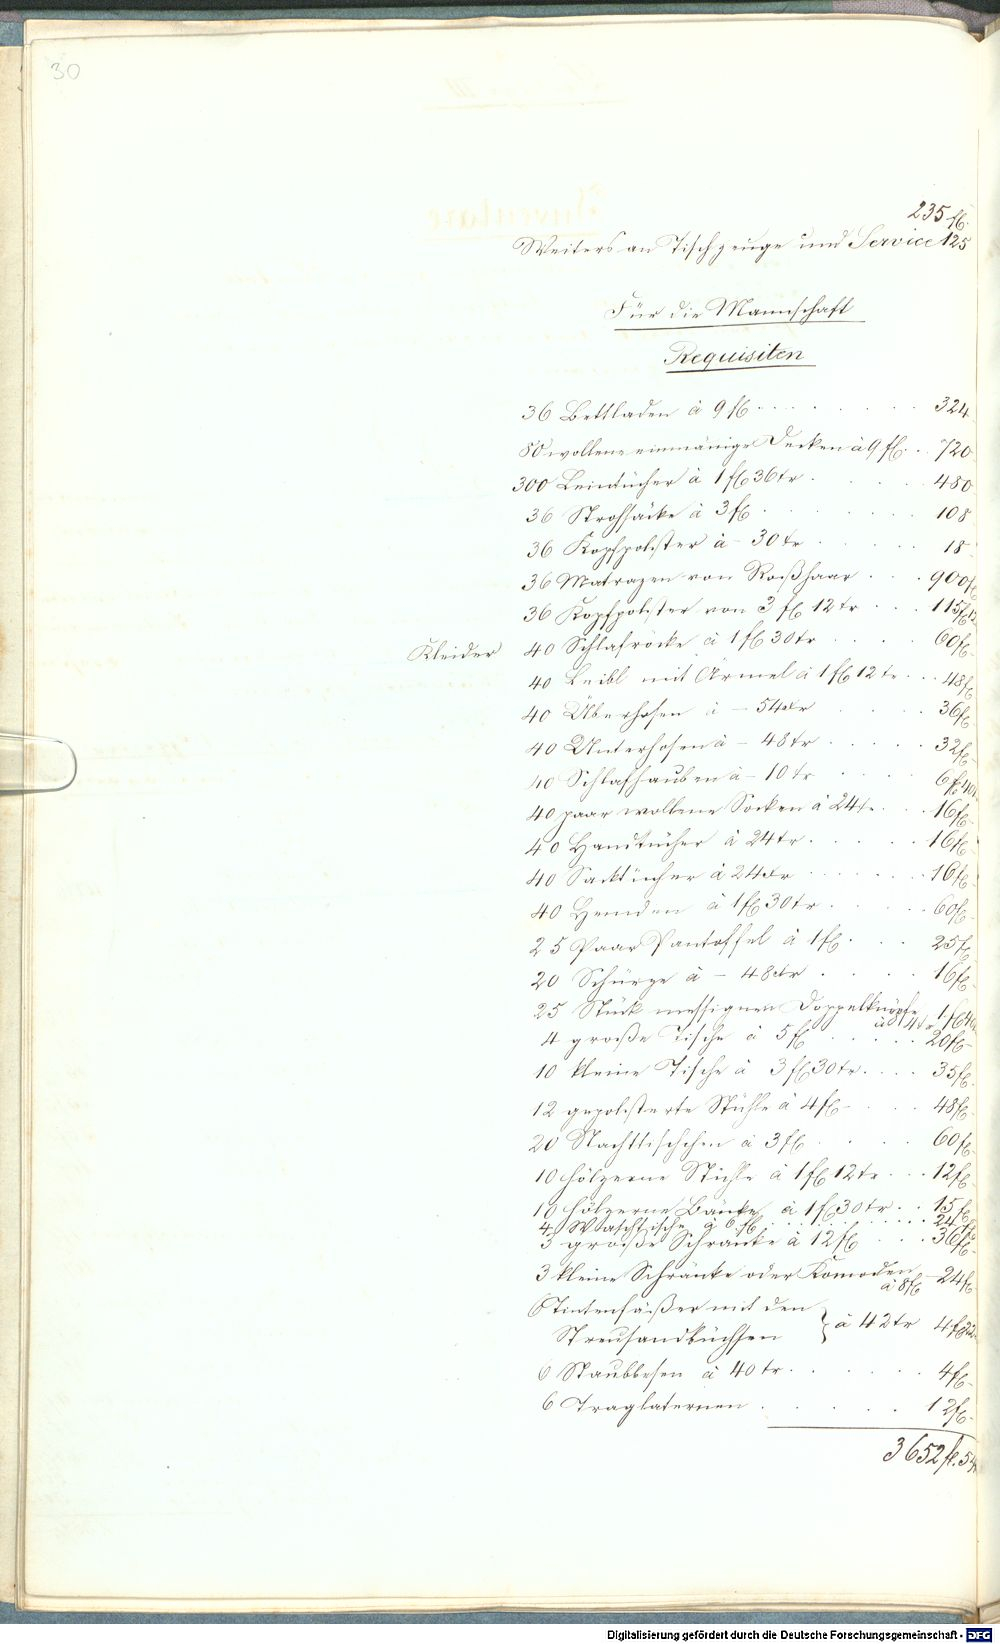 30
235 fl.
Weiters an Tischzeuge und Service 125
Für die Mannschaft
Requisiten
36 Bettladen à 9 fl. . . . . . 324
80 wollene einmänige Decken à 9 fl. . . 720
300 Leintücher à 1 fl 36 kr . . . . 480
36 Strohsäcke à 3 fl . . . . . 108
36 Kopfpolster à – 30 kr . . . . 18
36 Matrazen von Roßhaar . . . 900 fl
36 Kopfpolster von 3 fl 12 kr . . . 115 fl 12
Kleider 40 Schlafröcke à 1 fl 30 kr . . . . 60 fl
40 Leibl mit Ärmel à 1 fl 12 kr . . . 48 fl
40 Überhosen à – 54 kr . . . . 36 fl
40 Unterhosen à – 48 kr . . . . 32 fl
40 Schlafhauben à – 10 kr . . . . 6 fl 40
40 paar wollene Socken à 24 kr . . . 16 fl
40 Handtücher à 24 kr . . . . . 16 fl
40 Sacktücher à 24 kr . . . . . 16 fl
40 Hemden à 1 fl 30 kr . . . . . 60 fl
25 Paar Pantoffel à 1 fl . . . . 25 fl
20 Schürze à – 48 kr . . . . 16 fl
25 Stück messignen Doppelknöpfe
à 4 kr 1 fl 40
4 große Tische à 5 fl . . . . . 20 fl
10 kleine Tische à 3 fl 30 kr . . . . 35 fl
12 gepolsterte Stühle à 4 fl . . . . 48 fl
20 Nachttischchen à 3 fl . . . . . 60 fl
10 hölzerne Stühle à 1 fl 12 kr . . . 12 fl
10 hölzerne Bänke à 1 fl 30 kr . . 15 fl
4 Waschtische à 6 fl . . . . . . 24 fl
3 große Schränke à 12 fl . . . 36 fl
3 kleine Schränke oder Komoden
à 8 fl – 24 fl
6 Tintenfäßer mit den
Streusandbüchsen } à 42 kr 4 fl 22
6 Staubbesen à 40 kr . . . . . 4 fl
6 Traglaternen . . . . . 12 fl
3652 fl. 54
Digitalisierung gefördert durch die Deutsche Forschungsgemeinschaft - DFG